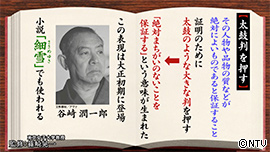 【太鼓判を押す】
その人物や品物の質などが
絶対によいものであると保証すること
証明のために
太鼓のような大きな判を押す
「絶対まちがいのないことを
保証する」という意味が生まれた
この表現は大正初期に登場
谷崎 潤一郎
小説「細雪」でも使われる
ささめゆき
©NTV